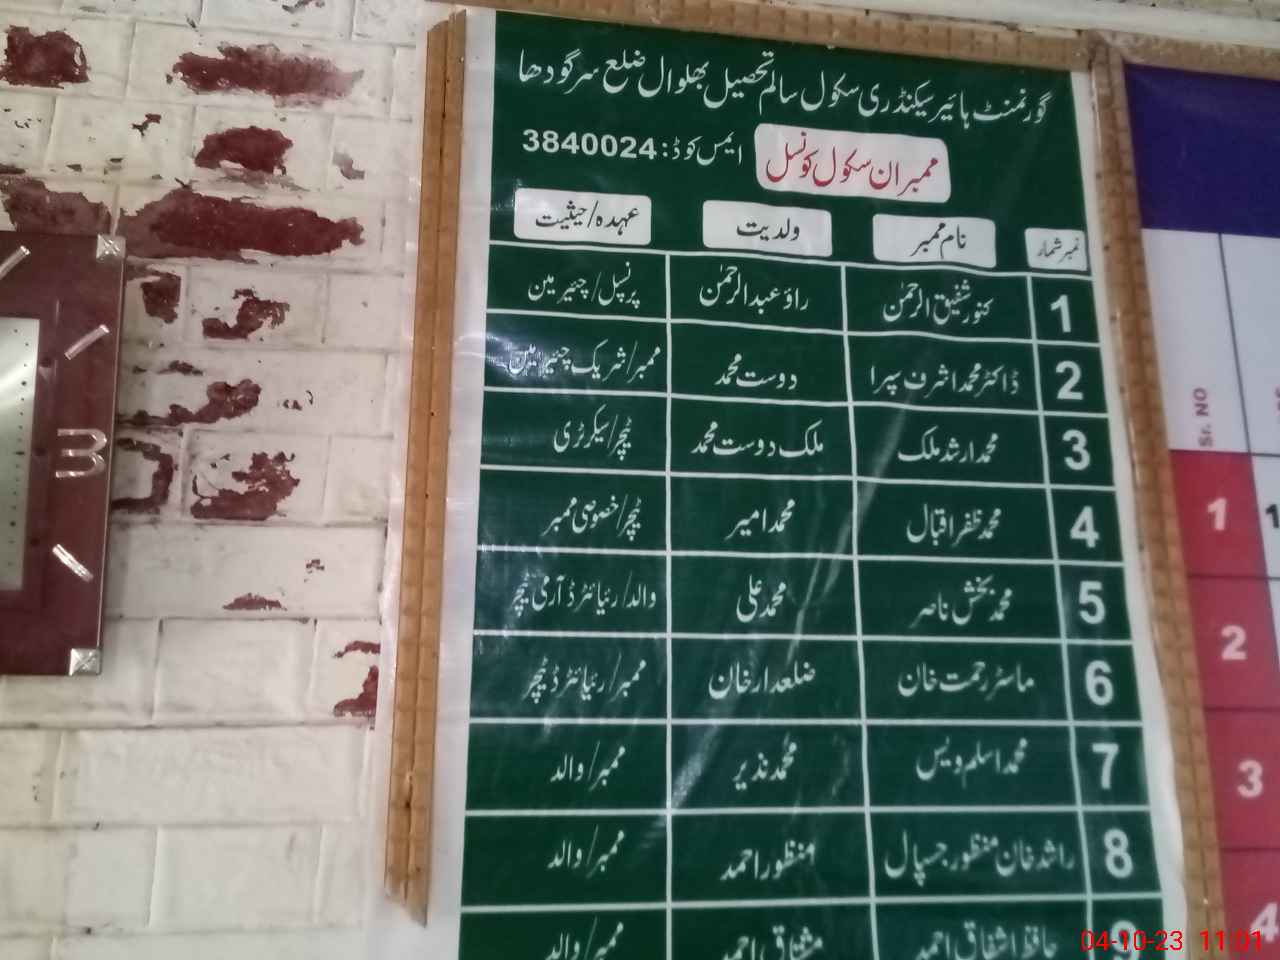 گورنمنٹ ہائیر سیکنڈری سکول سالم تحصیل بھلوال ضلع سرگودھا
ممبران سکول کونسل ایمس کوڈ: 3840024
نمبر شمار نام ممبر ولدیت عہدہ/حیثیت
1 کنور شفیق الرحمٰن راؤ عبدالرحمٰن پرنسپل/چئیرمین
2 ڈاکٹر محمد اشرف سپرا دوست محمد ممبر/شریک چئیرمین
3 محمد ارشد ملک ملک دوست محمد ٹیچر/سیکرٹری
4 محمد ظفر اقبال محمد امیر ٹیچر/خصوصی ممبر
5 محمد بخش ناصر محمد علی والد/ریٹائرڈ آرمی ٹیچر
6 ماسٹر رحمت خان ضلعدار خان ممبر/ریٹائرڈ ٹیچر
7 محمد اسلم ویس محمد نذیر ممبر/والد
8 راشد خان منظور جسپال منظور احمد ممبر/والد
9 حافظ اشفاق احمد مشتاق احمد ممبر/والد
Sr. NO
1
2
3
4
3
04-10-23 11:01